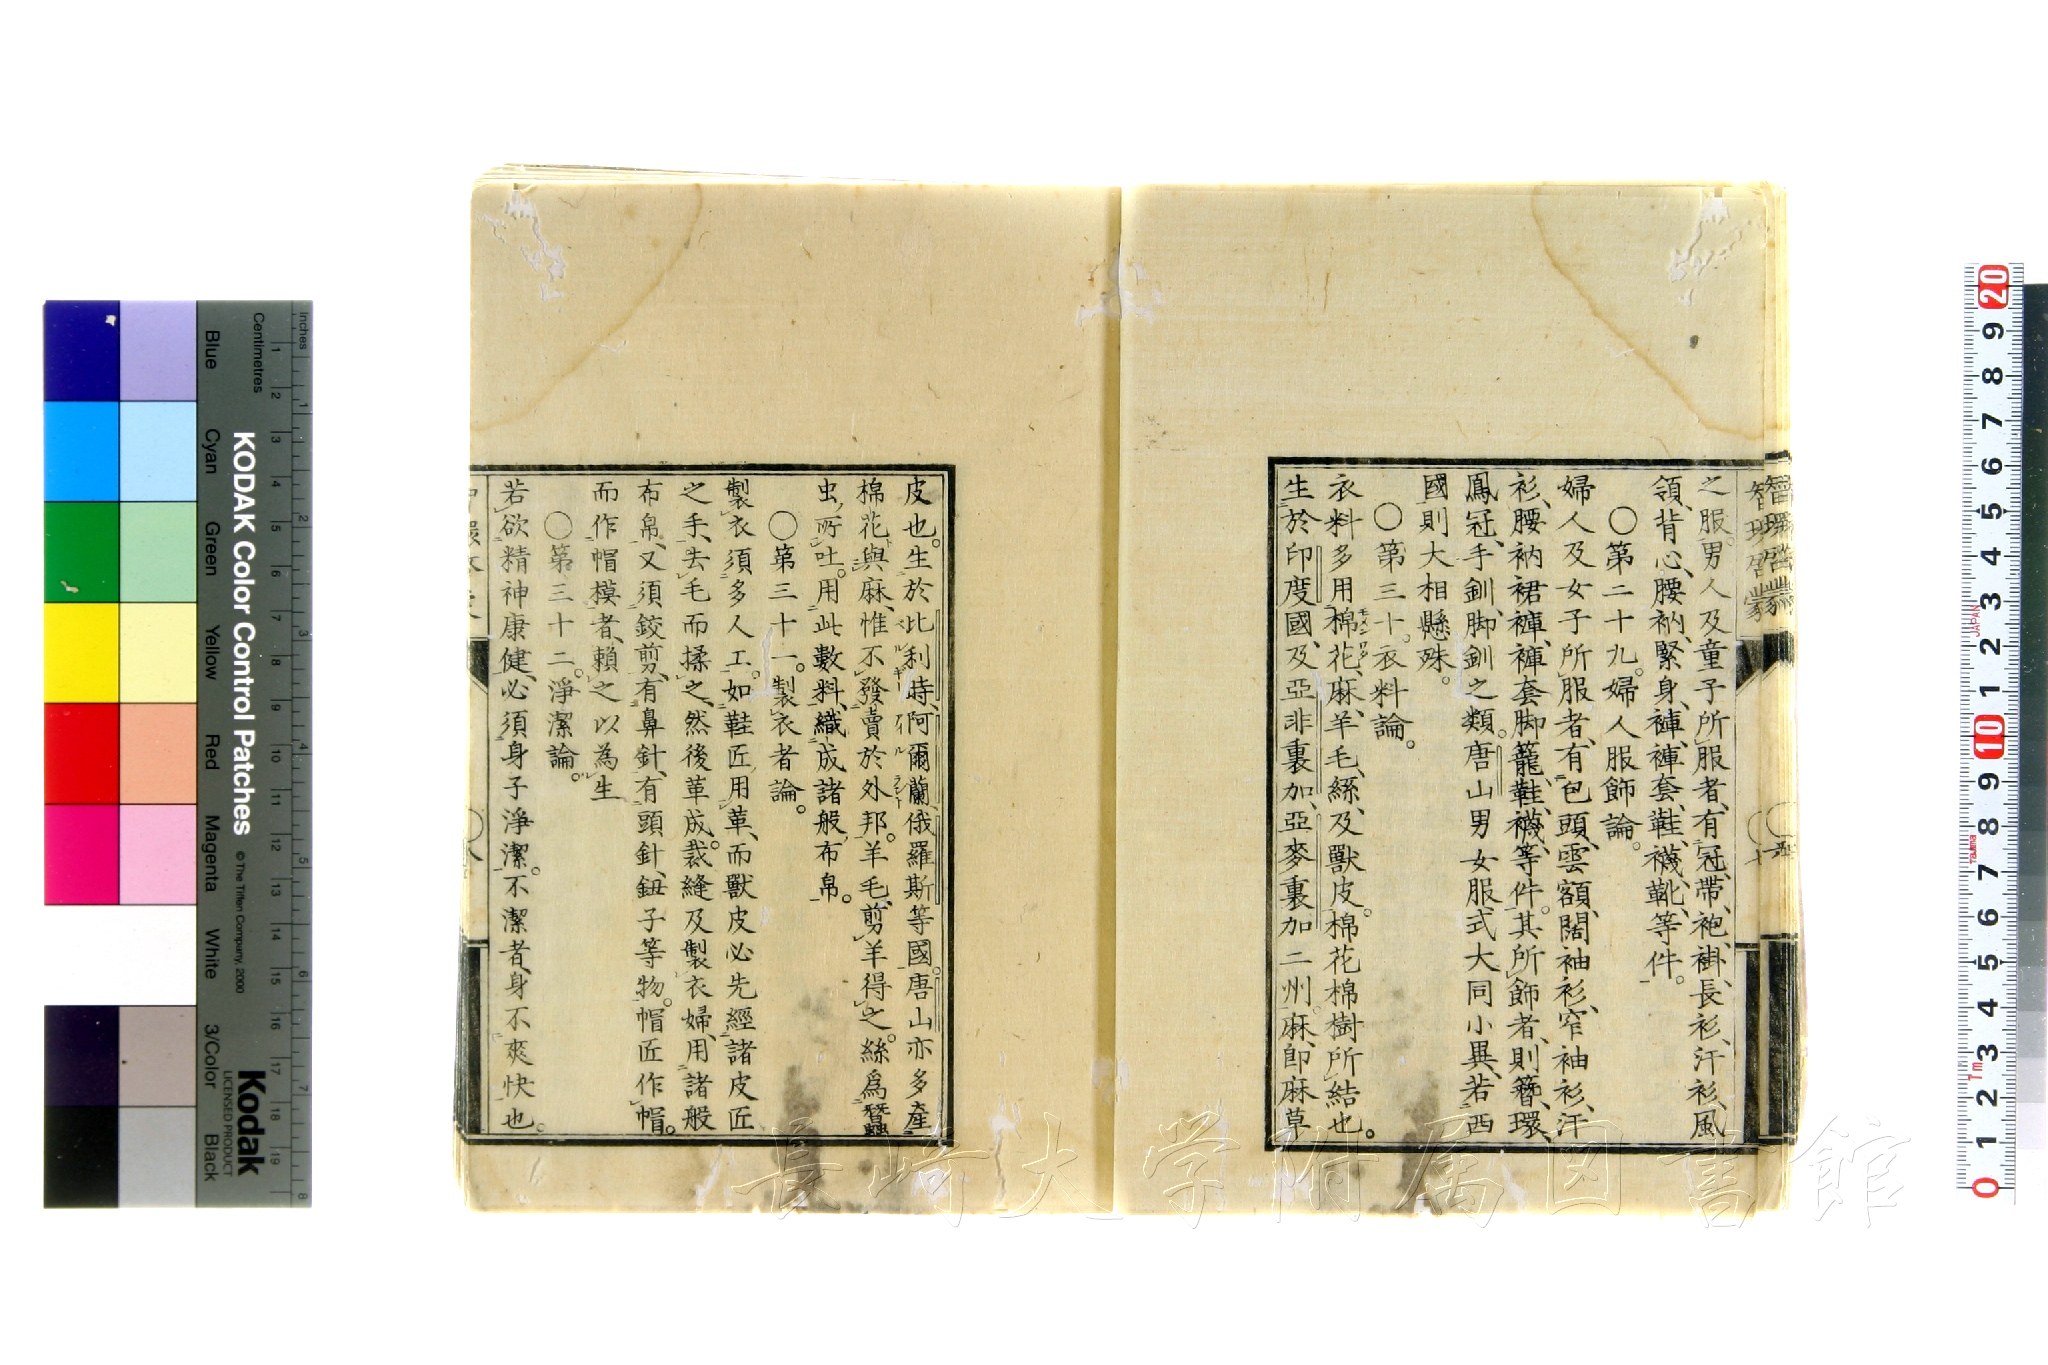 智環啓蒙
之服。男人及童子所服者、有冠、帶、袍、褂、長衫、汗衫、風
領、背心、腰衲、緊身、褲、褲套、鞋、襪、靴、等件。
〇第二十九。婦人服飾論。
婦人及女子所服者、有包頭、雲額、闊袖衫、窄袖衫、汗
衫、腰衲、裙、褲、褲套、脚籠、鞋、襪、等件。其所飾者、則簪、環、
鳳冠、手釧、脚釧之類。唐山男女服式、大同小異、若西
國則大相懸殊。
〇第三十。衣料論。
衣料多用棉花、麻、羊毛、絲、及獸皮。棉花棉樹所結也。
生於印度國、及亞非裏加、亞麥裏加二州。麻、卽麻草
皮也。生於比利時、阿爾蘭、俄羅斯等國。唐山亦多產
棉花、與麻、惟不發賣於外邦。羊毛、剪羊得之。絲爲蠶
虫所吐。用此數料、織成諸般布帛。
〇第三十一。製衣者論。
製衣須多人工。如鞋匠用革、而獸皮必先經諸皮匠
之手、去毛而揉之、然後革成。裁縫及製衣婦、用諸般
布帛、又須鉸剪、有鼻針、有頭針、鈕子等物。帽匠作帽。
而作帽模者、賴之以為生
〇第三十二。淨潔論。
若欲精神康健、必須身子淨潔。不潔者、身不爽快也。
KODAK Color Control Patches
© The Tiffen Company, 2000
Kodak
LICENSED PRODUCT
Inches
Centimetres
Blue
Cyan
Green
Yellow
Red
Magenta
White
3/Color
Black
長崎大学附属図書館